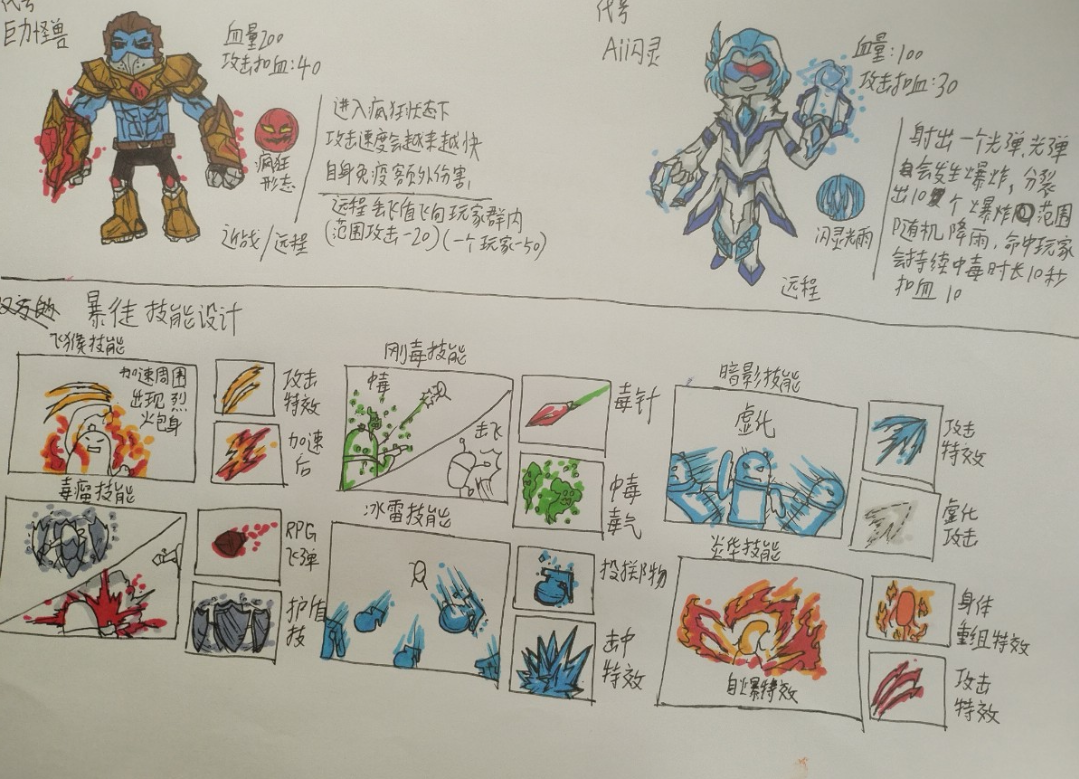 代号
巨力怪兽
血量200
攻击扣血:40
疯狂
形态
进入疯狂状态下
攻击速度会越来越快
自身免疫额外伤害,
远程丢飞值飞向玩家群内
(范围攻击-20)(一个玩家-50)
近战/远程
代号
Aii闪灵
血量:100
攻击扣血:30
闪灵光雨
射出一个光弹,光弹
会发生爆炸,分裂
出10个爆炸范围
随机降雨,命中玩家
会持续中毒时长10秒
扣血10
远程
暴徒技能设计
飞猴技能
加速周围
出现烈
火包身
攻击
特效
加速
后
刚毒技能
中毒
击飞
毒针
中毒
毒气
暗影技能
虚化
攻击
特效
虚化
攻击
毒瘤技能
RPG
飞弹
护值
技
冰雷技能
投掷物
击中
特效
炎华技能
自爆特效
身体
重组特效
攻击
特效